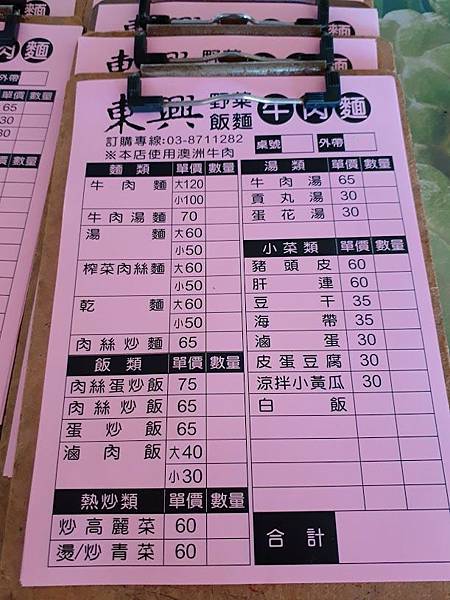 東興 野菜飯麵 牛肉麵
訂購專線:03-8711282 桌號 外帶
※本店使用澳洲牛肉
麵類 單價 數量
牛肉麵 大120
小100
牛肉湯麵 70
湯麵 大60
小50
榨菜肉絲麵 大60
小50
乾麵 大60
小50
肉絲炒麵 65
飯類 單價 數量
肉絲蛋炒飯 75
肉絲炒飯 65
蛋炒飯 65
滷肉飯 大40
小30
熱炒類 單價 數量
炒高麗菜 60
燙/炒青菜 60
湯類 單價 數量
牛肉湯 65
貢丸湯 30
蛋花湯 30
小菜類 單價 數量
豬頭皮 60
肝連 60
豆干 35
海帶 35
滷蛋 30
皮蛋豆腐 30
涼拌小黃瓜 30
白飯
合計